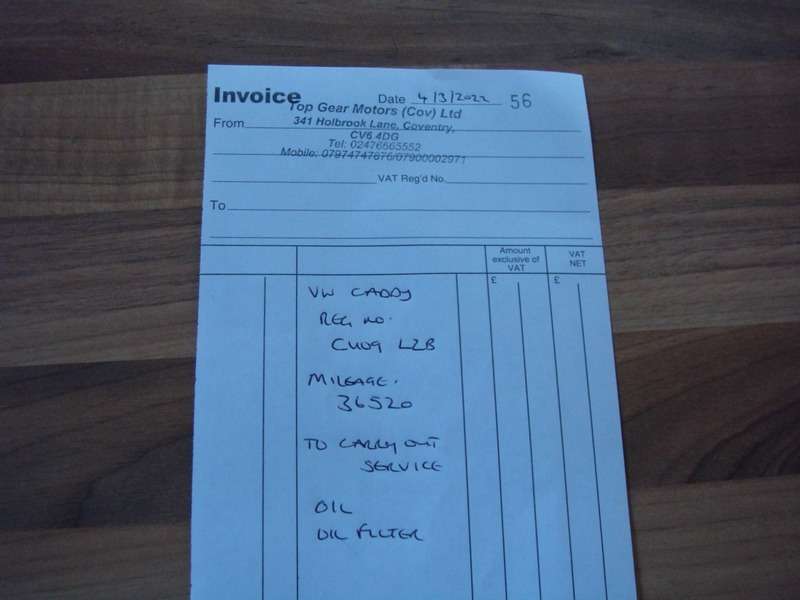 Invoice Date 4/3/2022 56
Top Gear Motors (Cov) Ltd
From 341 Holbrook Lane, Coventry,
CV6 4DG
Tel: 02476665552
Mobile: 07974747876/07900002971
VAT Reg'd No.
To
Amount exclusive of VAT
VAT NET
£ £
VW CADDY
REG NO.
LZB
MILEAGE.
36520
TO CARRY OUT
SERVICE
OIL
OIL FILTER